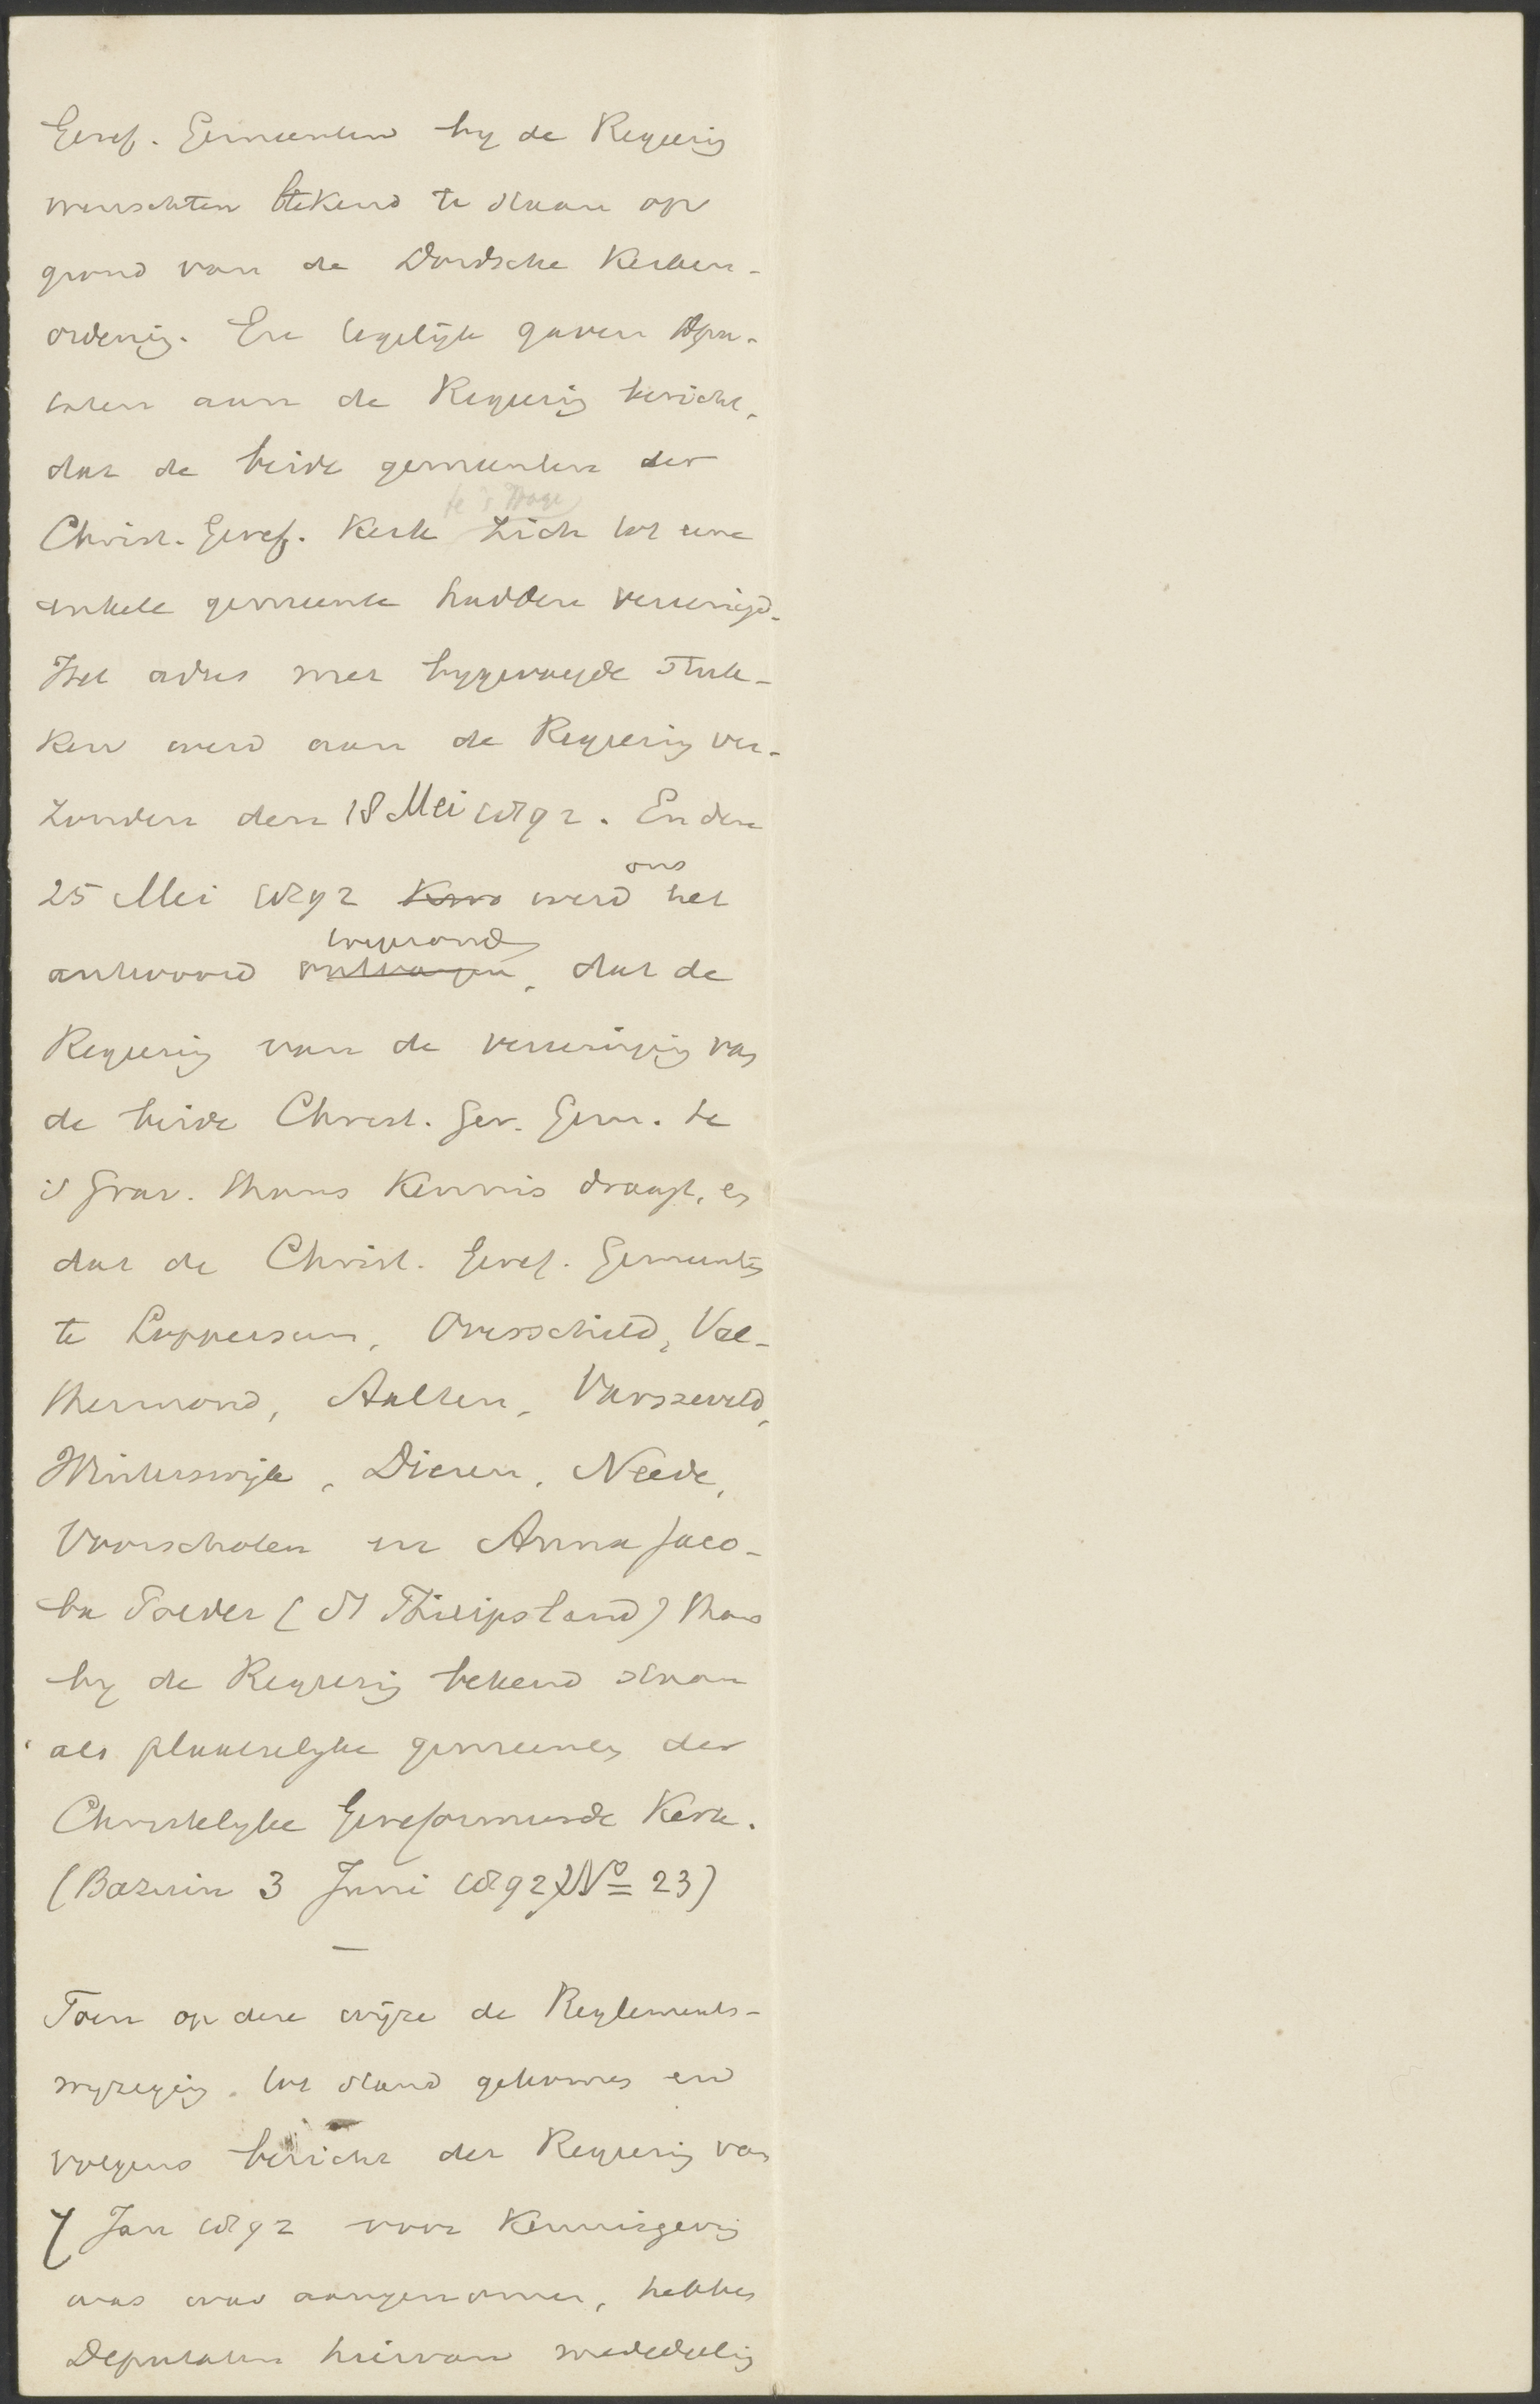 Geref. Gemeenten by de Regeering
wenschten bekend te staan op
grond van de Dordsche Kerken-
ordening. En tegelijk gaven Depu-
taten aan de Regeering bericht,
dat de beide gemeenten der
te 's Hage
Christ. Geref. Kerk zich tot eene
enkele gemeente hadden vereenigd.
Het adres met bygevoegde stuk-
ken werd aan de Regeering ver-
zonden den 18 Mei 1892. En den
ons
25 Mei 1892 werd het
antwoord ontvangen, dat de
Regeering van de vereeniging van
de beide Christ. Ger. Gem. te
's Grav. thans kennis draagt, en
dat de Christ. Geref. Gemeenten
te Loppersum, Overschild, Val-
thermond, Aalten, Varsseveld,
Winterswijk, Dieren, Neede,
Voorschoten en Anna Jaco-
ba Polder (St Philipsland) thans
by de Regeering bekend staan
als plaatselyke gemeenten der
Christelyke Gereformeerde Kerk.
(Bazuin 3 Juni 1892) No 23)
—
Toen op deze wijze de Reglements-
wyzeging tot stand gekomen en
volgens bericht der Regeering van
7 Jan 1892 voor kennisgeving
was aangenomen, hebben
Deputaten hiervan mededeeling